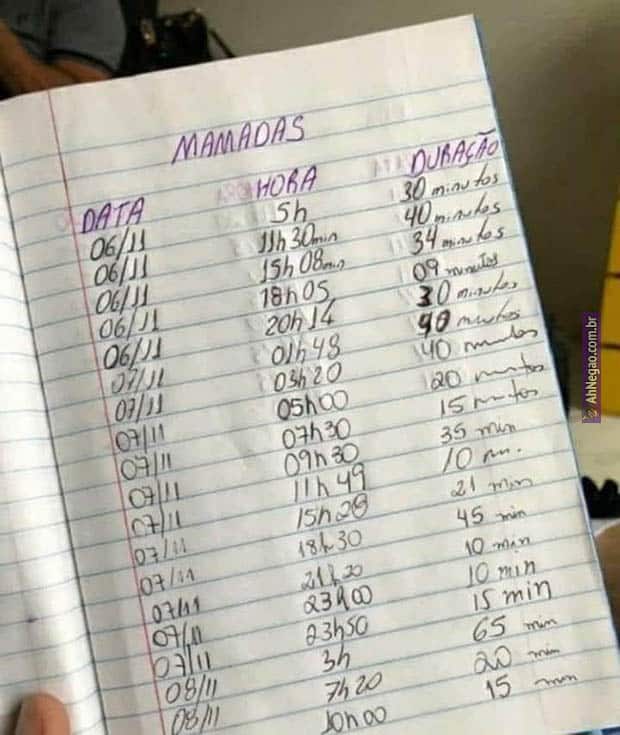 MAMADAS
DATA HORA DURAÇÃO
06/11 5h 30 minutos
06/11 11h30min 40 minutos
06/11 15h08min 34 minutos
06/11 18h05 09 minutos
06/11 20h14 30 minutos
07/11 01h48 90 minutos
07/11 03h20 40 minutos
07/11 05h00 20 minutos
07/11 07h30 15 minutos
07/11 09h30 35 min
07/11 11h49 10 m.
07/11 15h28 21 min
07/11 18h30 45 min
07/11 21h20 10 min
07/11 23h00 10 min
07/11 23h50 15 min
08/11 3h 65 min
08/11 7h20 20 min
10h00 15 min
AhNegao.com.br